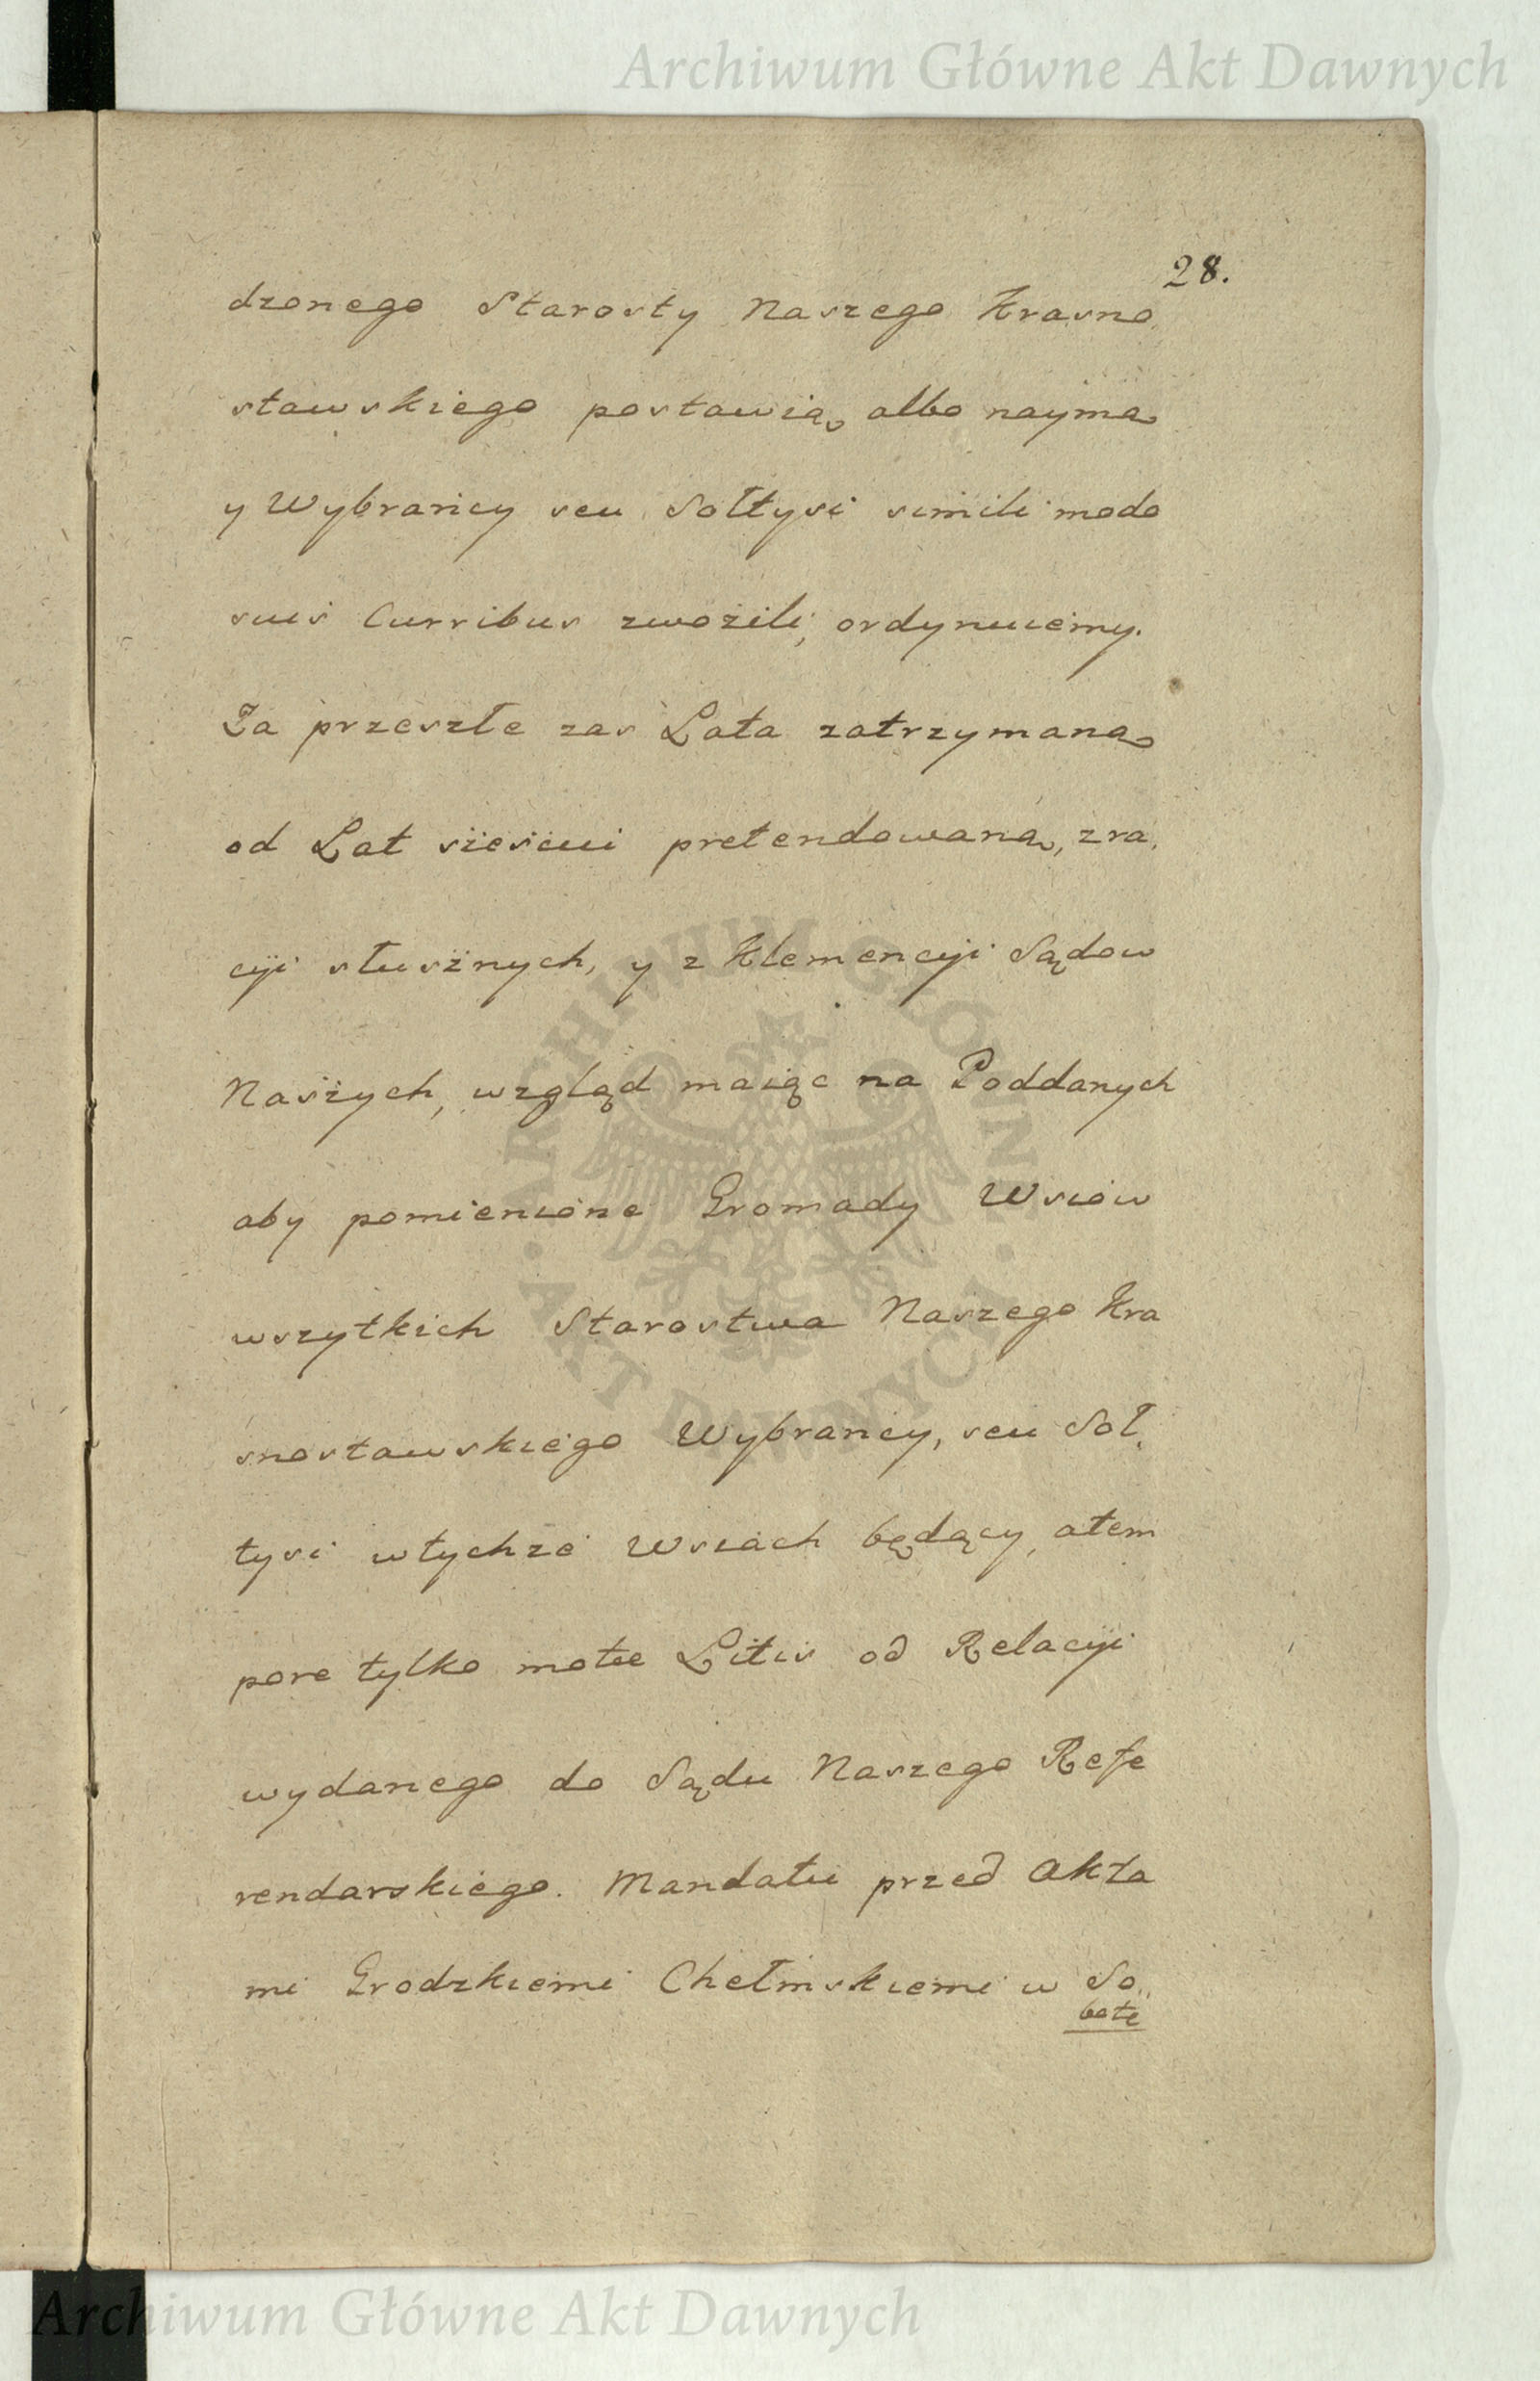 Archiwum Główne Akt Dawnych
28.
dzonego Starosty Naszego Krasno
stawskiego postawią, albo naymą
y Wybrańcy seu Sołtysi simili modo
suis Curribus zwozili, ordynuiemy.
Za przeszłe zas Lata zatrzymaną
od Lat sześciu pretendowaną, z ra,
cyi słusżnych, y z Klemencyi Sądow
Naszych, wzgląd maiąc na Poddanych
aby pomienione Gromady Wsiów
wszytkich Starostwa Naszego Kra
snostawskiego Wybrancy, seu Soł,
tysi w tychże Wsiach będący, a tem
pore tylko motæ Litis od Relacyi
wydanego do Sądu Naszego Refe
rendarskiego. Mandatu przed Akta
mi Grodzkiemi Chełmskiemi w So,,
botę
ARCHIWUM GŁÓWNE · AKT DAWNYCH ·
Archiwum Główne Akt Dawnych